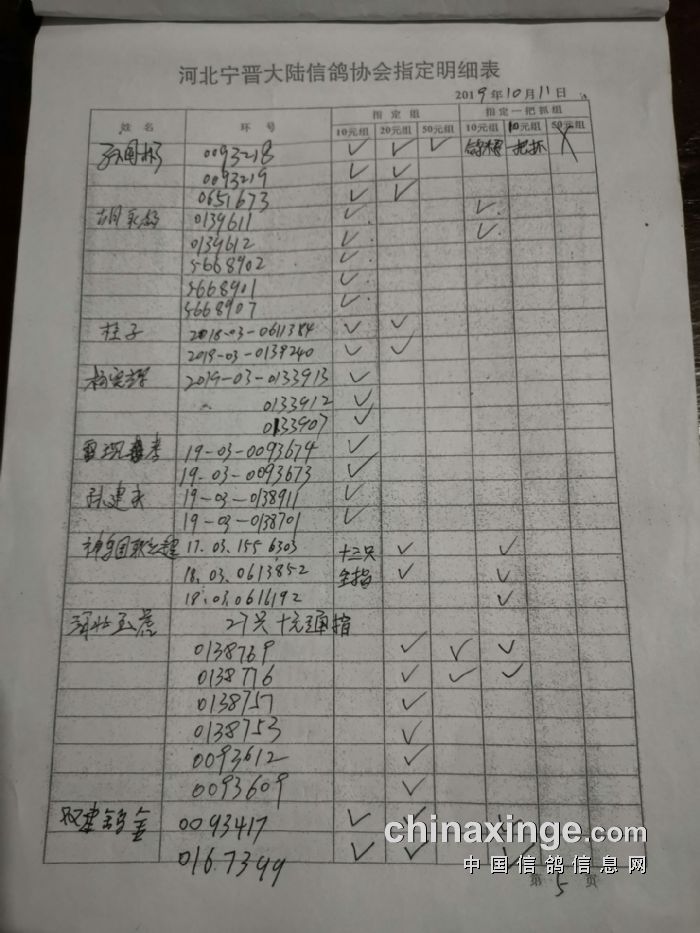 河北宁晋大陆信鸽协会指定明细表
2019年10月11日
指定组 指定一把抓组
姓名 环号 10元组 20元组 50元组 10元组 10元组 50元组
0093218 ✓ ✓ ✓ 一把抓 X
0093219 ✓ ✓
0651673 ✓ ✓
0139611 ✓ ✓
0139612 ✓ ✓
5668902 ✓
5668901 ✓
5668907 ✓
桂子 2018-03-0611384 ✓ ✓
2019-03-0139240 ✓ ✓
2019-03-0133913 ✓
0133912 ✓
0133907 ✓
19-03-0093674 ✓
19-03-0093673 ✓
19-03-0138911 ✓
19-03-0138701 ✓
17.03.1556303 十三只 ✓ ✓
18.03.0613852 全指 ✓ ✓
18.03.0616192 ✓
河北玉虎 27只十元通指
0138769 ✓ ✓ ✓
0138776 ✓ ✓ ✓
0138757 ✓
0138753 ✓
0093612 ✓
0093609 ✓
0093417 ✓ ✓ ✓
016.7399 ✓ ✓ ✓
chinaxinge.com
中国信鸽信息网
第5页